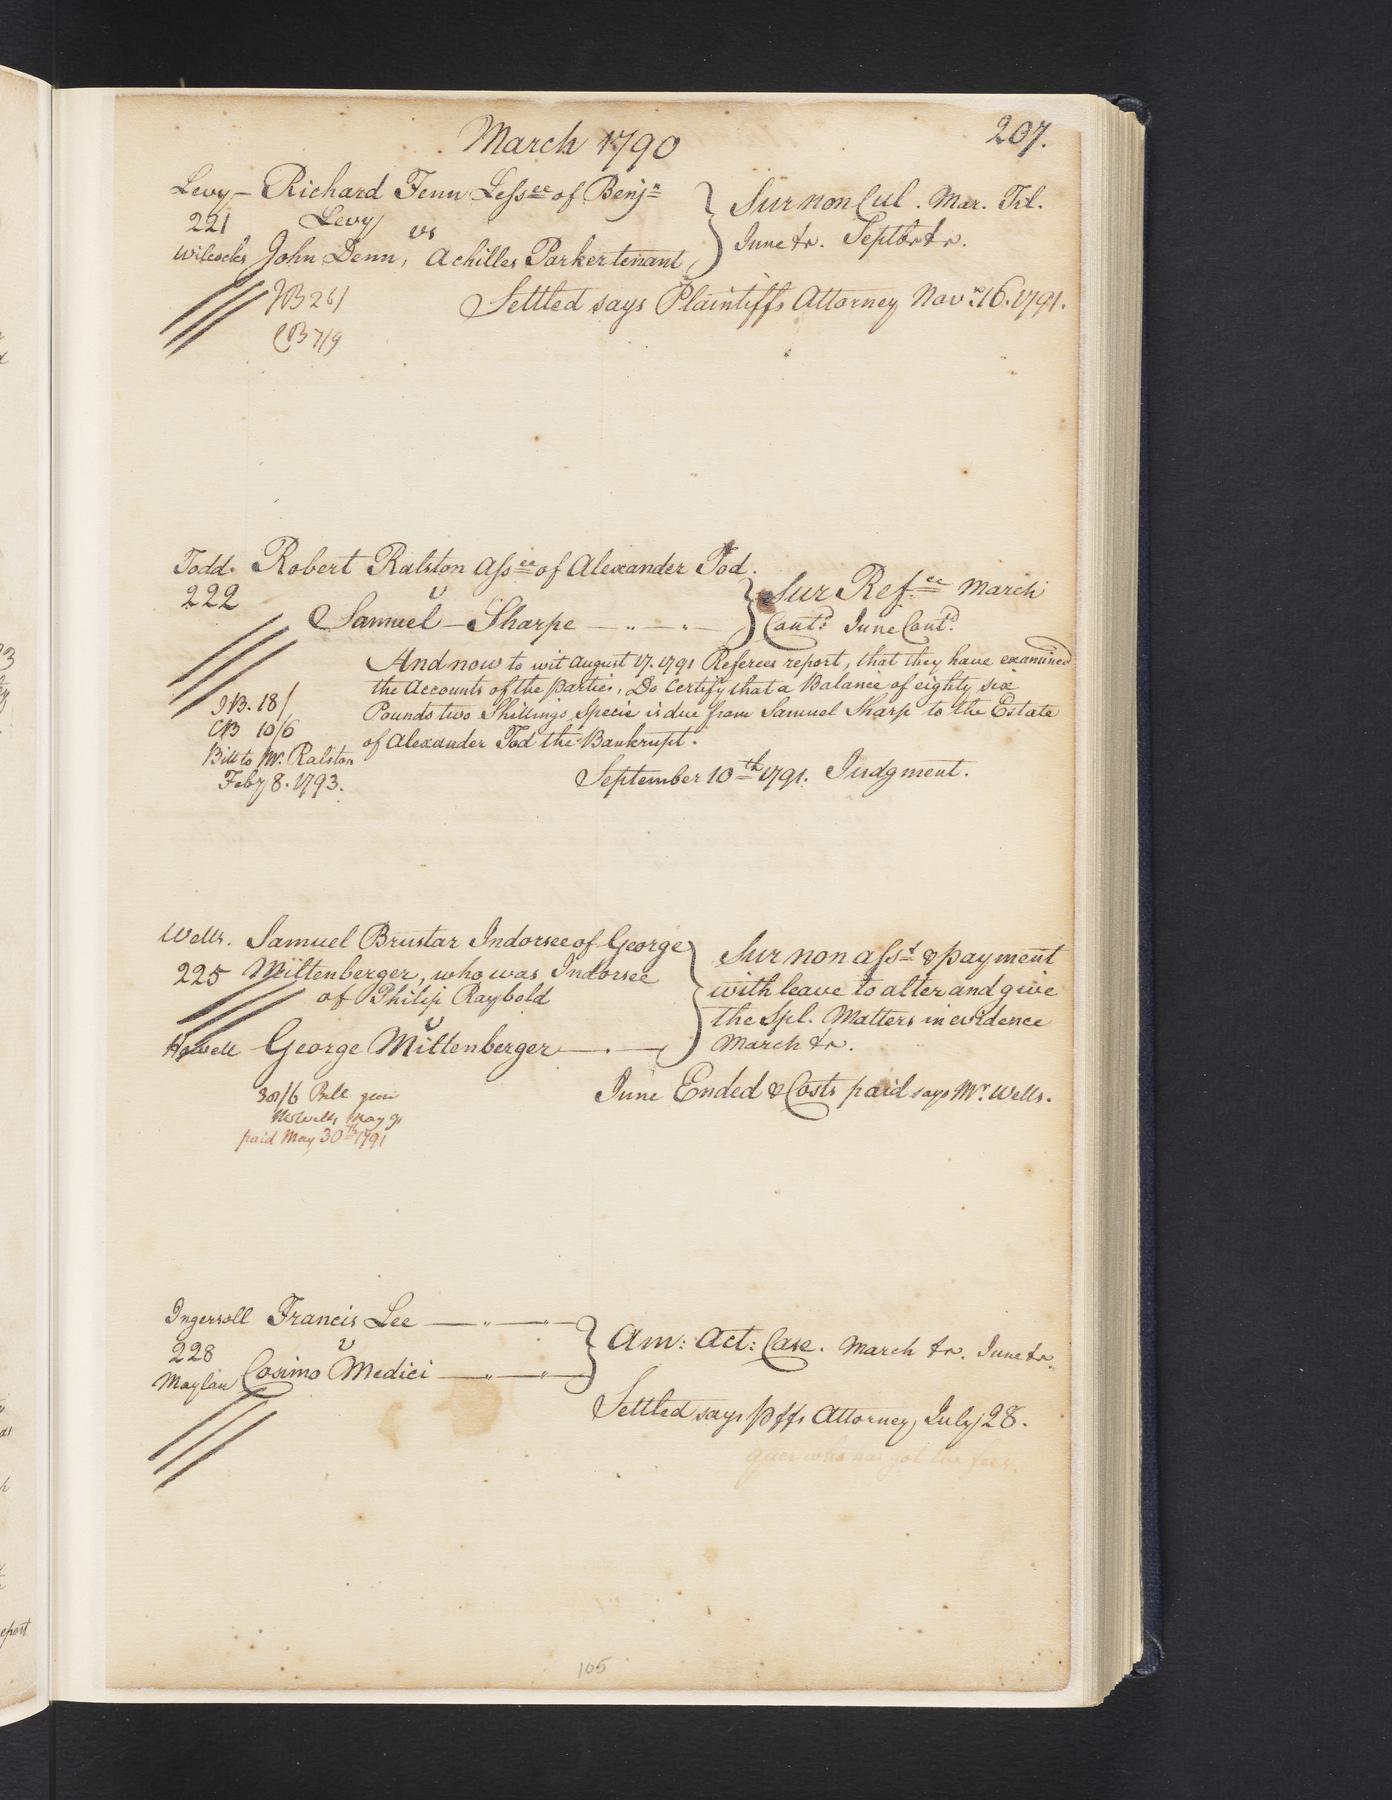 March 1790
207.
Levy – Richard Fenn Lessee of Benjn
221 Levy vs
Wilcocks John Denn, Achilles Parker tenant
Sur non Cul. Mar. Trl.
June tr. Septbr tr.
JB 26/
CB 7/9
Settled says Plaintiffs Attorney Novr. 16. 1791.
Todd. Robert Ralston Assee of Alexander Tod.
222 v
Samuel – Sharpe
Sur Refce March
Contd June Contd.
And now to wit August 17. 1791 Referees report, that they have examined
the Accounts of the parties, Do Certify that a Balance of eighty six
Pounds two Shillings Specie is due from Samuel Sharp to the Estate
of Alexander Tod the Bankrupt.
JB. 18/
CB 10/6
Bill to Mr. Ralston
Feby 8. 1793.
September 10th 1791. Judgment.
Wells. Samuel Brustar Indorsee of George
225 Miltenberger, who was Indorsee
of Philip Raybold
v
Howell George Miltenberger
Sur non Asst & payment
with leave to alter and give
the Spl. Matters in evidence
March tr.
June Ended & Costs paid says Mr. Wells.
30/6 Bill given
Mr Wells May 91
paid May 30th 1791
Ingersoll Francis Lee
228 v
Moylan Cosimo Medici
Am: Act: Case. March tr. June tr.
Settled says pffs Attorney, July 28.
quer who has got the fees.
105